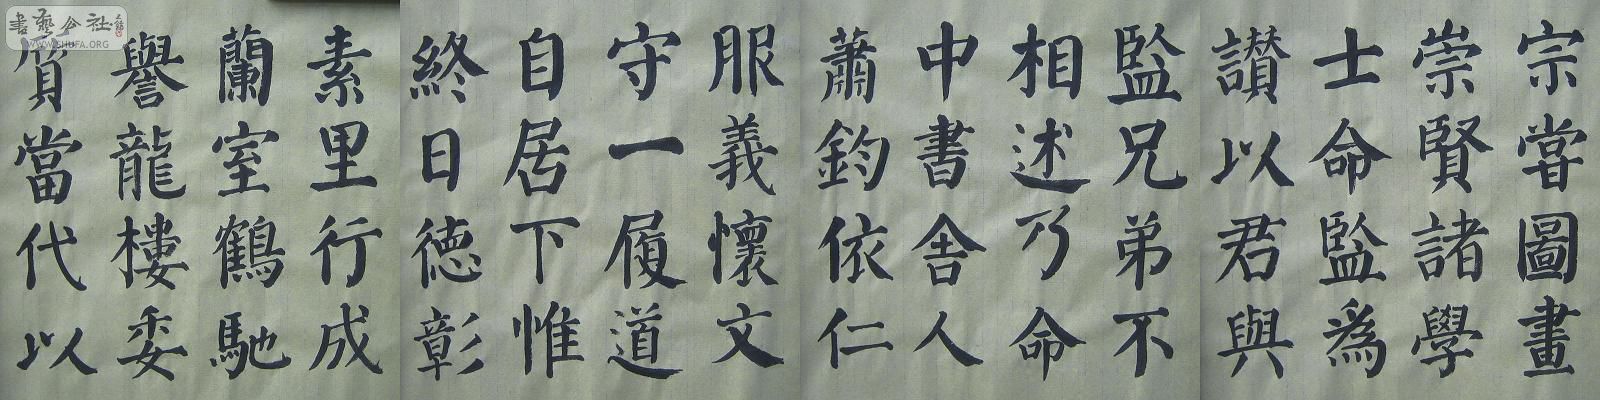 宗嘗圖畫
崇賢諸學
士命監為
讃以君與
監兄弟不
相述乃命
中書舎人
蕭鈞依仁
服義懷文
守一履道
自居下惟
終日德彰
素里行成
蘭室鶴馳
譽龍樓委
質當代以
書藝公社
WWW.SHUFA.ORG